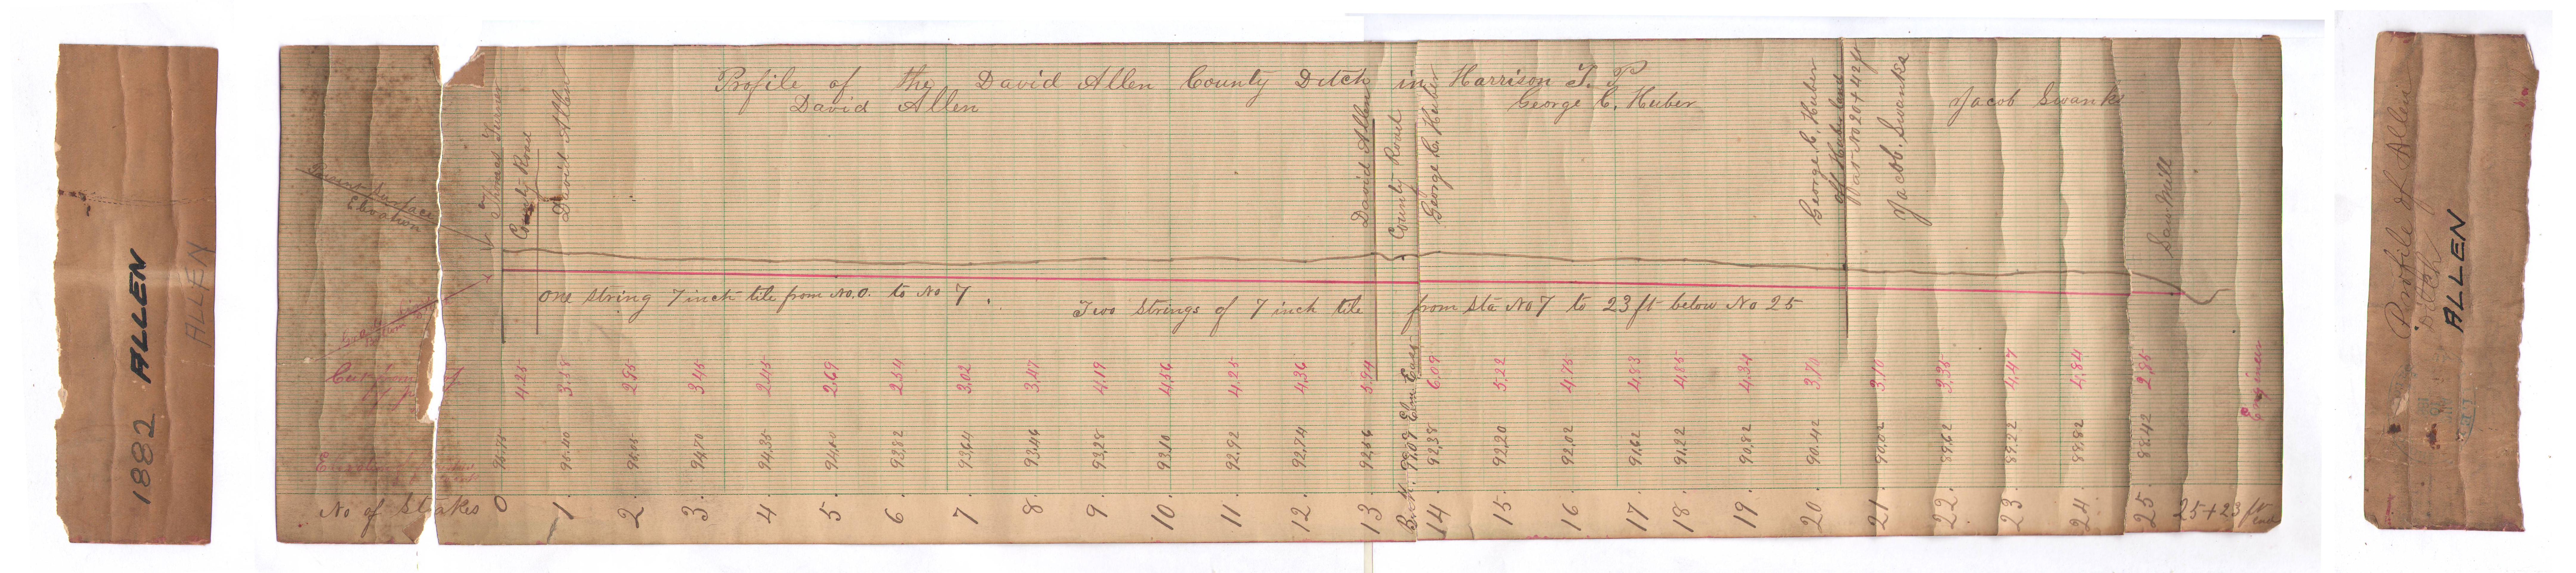 1882 ALLEN
ALLEN
Profile of the David Allen County Ditch in Harrison T. P
David Allen
George C. Huber
Jacob Swanks
Elevation
Thomas
County Road
David Allen
David Allen
County Road
George C. Huber
George C. Huber
Sta No 20 + 42 ft
Jacob. Swanks
Saw Mill
One string 7 inch tile from No. 0. to No 7.
Two Strings of 7 inch tile from Sta No 7 to 23 ft below No 25
Cut from
4.25 3.38 2.95 3.45 2.45 2.69 2.54 3.02 3.47 4.19 4.56 4.25 4.36 5.94 6.09 5.22 4.75 4.83 4.85 4.34 3.70 3.10 3.35 4.47 4.84 2.85
Engineer
94.70 94.35 93.82 93.64 93.46 93.28 93.10 92.92 92.74 92.56 92.38 92.20 92.02 91.62 91.22 90.82 90.42 90.02 89.62 89.22 88.82 88.42
No of Stakes 0 1. 2. 3. 4. 5. 6. 7. 8. 9. 10. 11. 12. 13 14. 15. 16. 17. 18. 19. 20. 21. 22. 23. 24. 25. 25+23 ft
Profile of Allen
Ditch
ALLEN